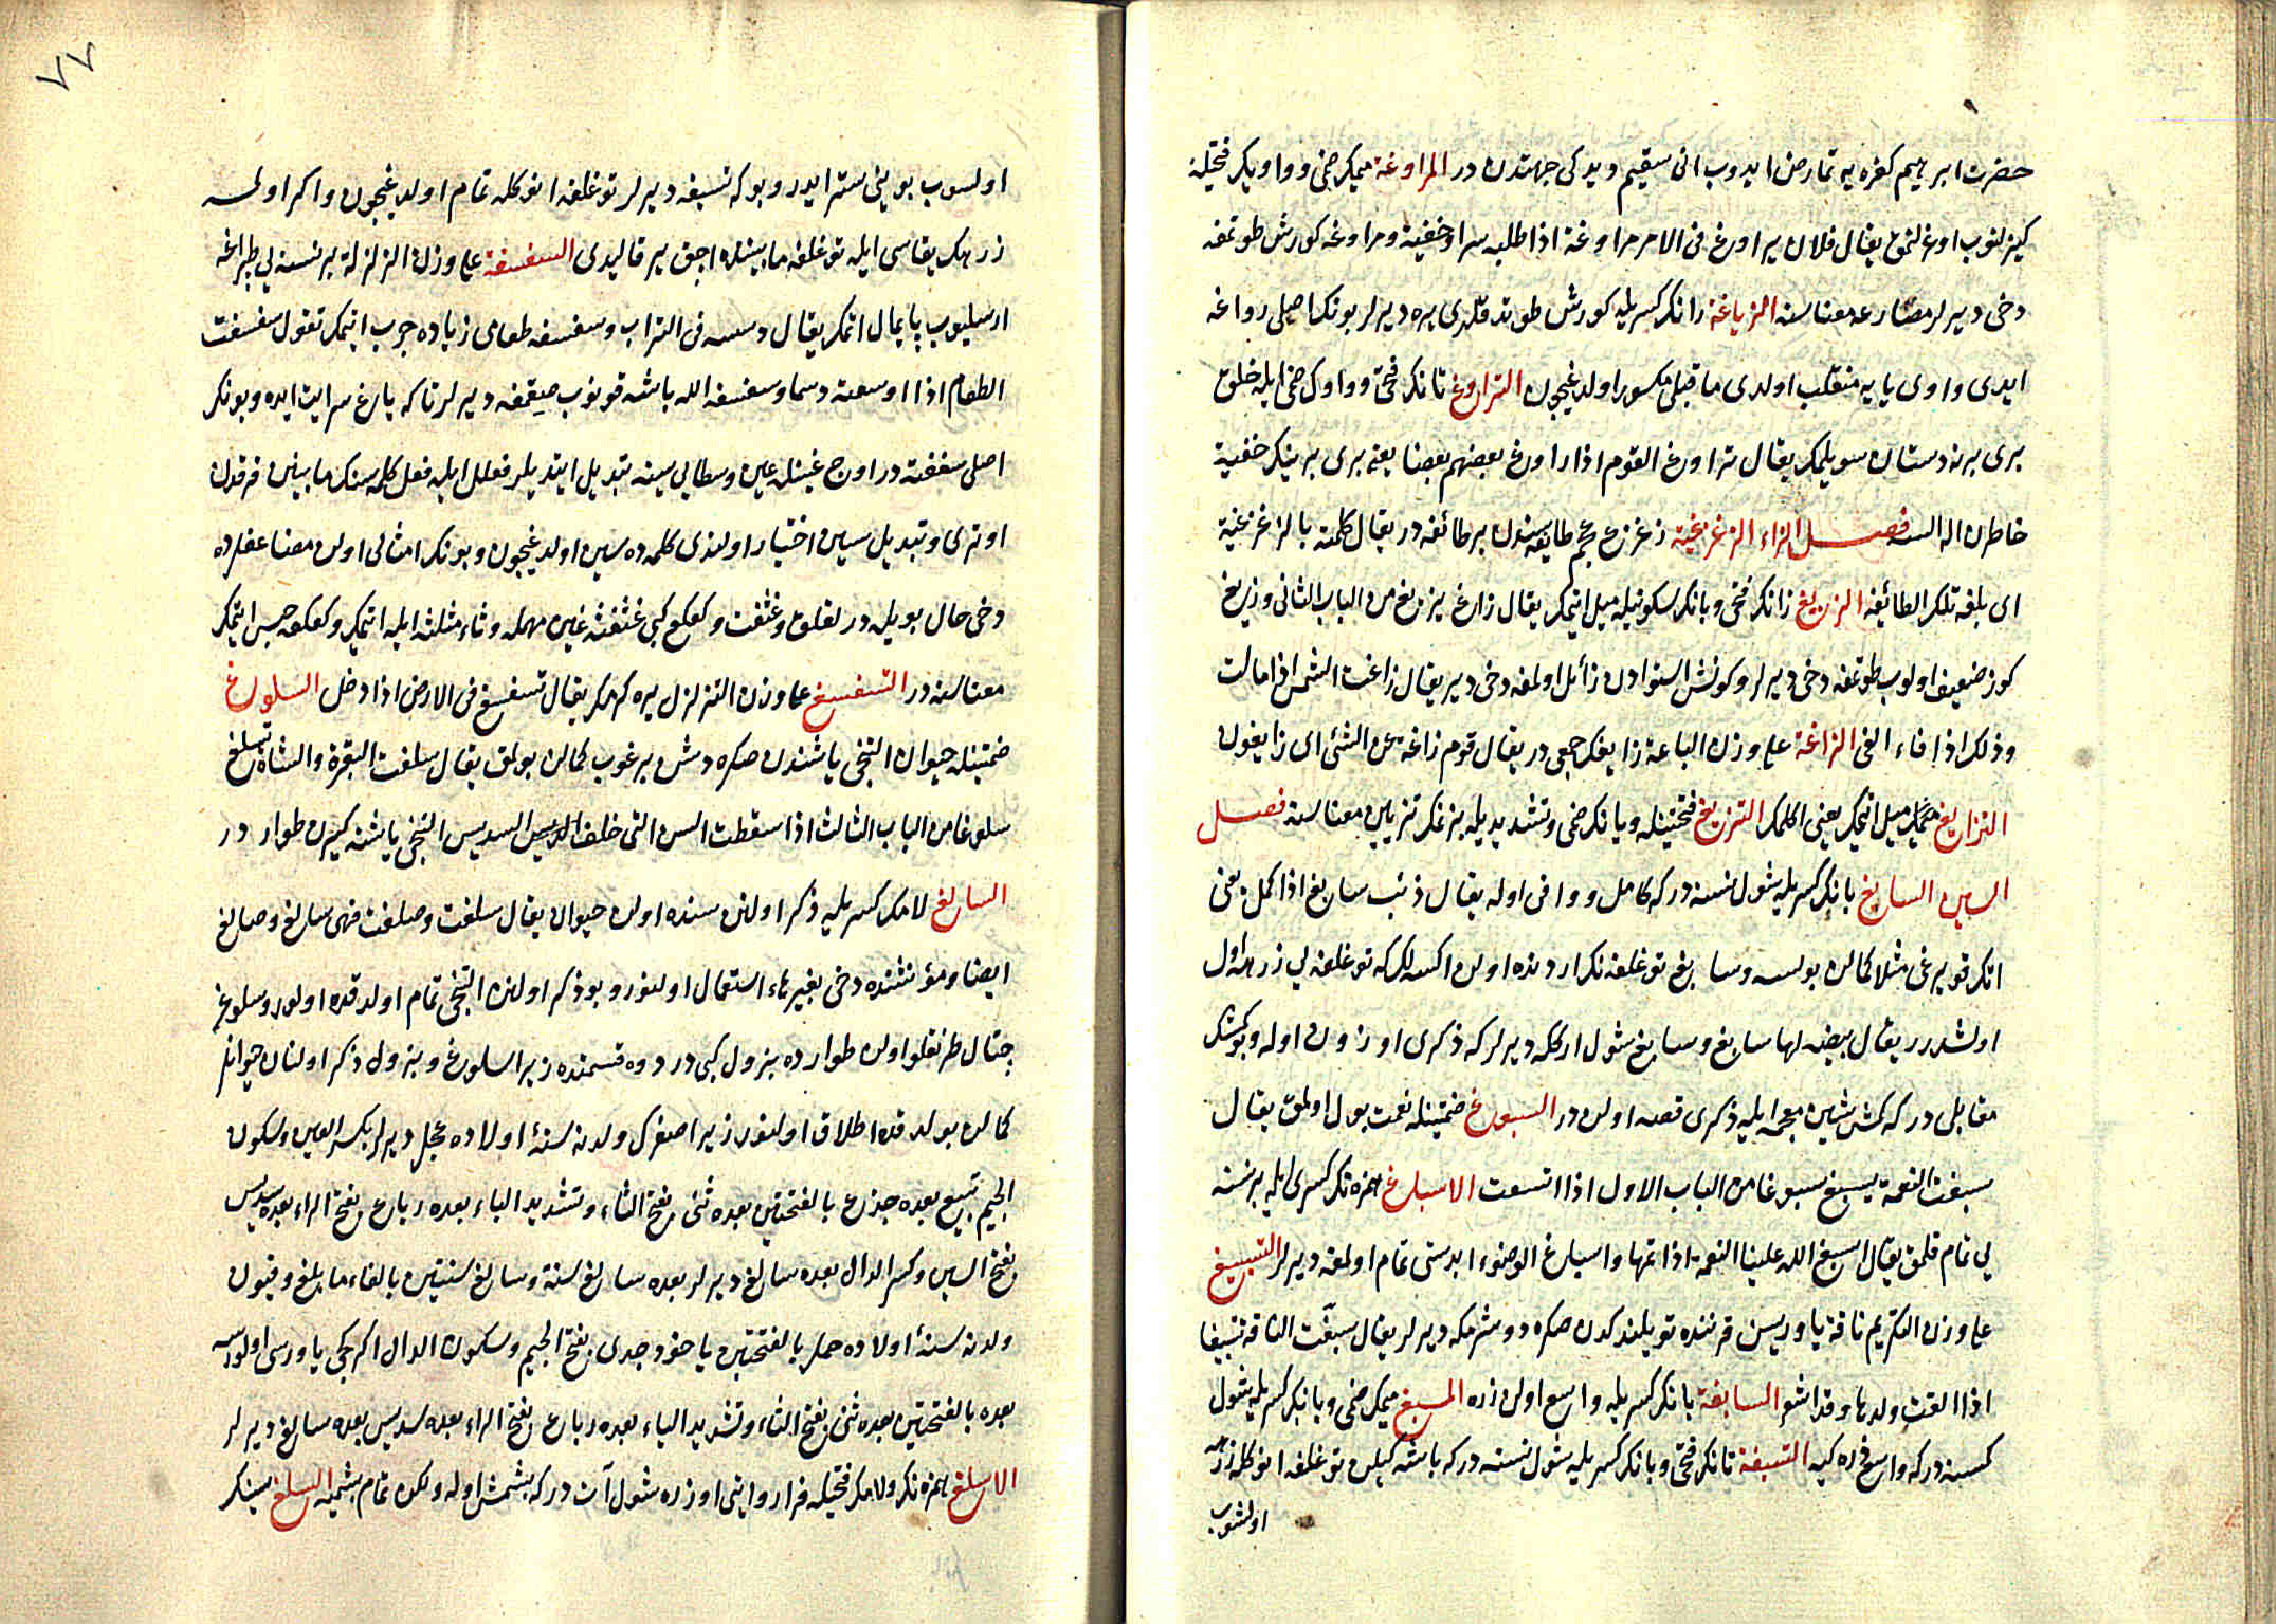 حضرت ابرهيم كفره يه تمارض ايدوب انى سقيم ديدكى جهتدن در المراوغة ميمك ضمى و واوك فتحيله
كيزلنوب اوغرلنمق يقال فلان يراوغ فى الامر مراوغة اذا طلبه سرا وخفية ومراوغه كورش طوتمغه
دخى ديرلر مصارعه معناسنه الزياغة زانك كسريله كورش طوتدقلرى يره ديرلر بونك اصلى رواغه
ايدى واوى يايه منقلب اولدى ماقبلى مكسور اولديغيچون التراوغ تانك فتحى و واوك ضمى ايله خلق
برى برنه دستان سويلمك يقال تراوغ القوم اذا راوغ بعضهم بعضا يعنى برى برينك خفية
خاطرن اله السه فصل الزاء الزغزغية زغزغ عجم طايفه سندن بر طائفه در يقال كلمته بالزغزغية
اى بلغة تلك الطائفة الزيغ زانك فتحى و يانك سكونيله ميل ايتمك يقال زاغ يزيغ من الباب الثانى وزيغ
كوز ضعيف اولوب طوتمغه دخى ديرلر و كونش استوادن زائل اولمغه دخى دير يقال زاغت الشمس اذا مالت
وذلك اذا فاء الفئ الزاغة على وزن الباعة زايغك جمعى در يقال قوم زاغة عن الشئ اى زايغون
التزايغ ميل ايتمك يعنى اكلمك التزيغ فتحتينله و يانك ضمى و تشديديله بزنمك تزيين معناسنه فصل
السين السابغ بانك كسريله شول نسنه در كه كامل و وافى اوله يقال ذنب سابغ اذا كمل يعنى
انك قويرغى مثلا كمالن بولسه وسابغ توغلغه نك اردنده اولن اكسه لك كه توغلغه لى زرهه اول
اولشدرر يقال بيضة لها سابغ وسابغ شول اركگه ديرلر كه ذكرى اوزون اوله و بو كمشك
مقابلى در كه كمش شين معجمه ايله ذكرى قصه اولن در السبوغ ضمتينله نعمت بول اولمق يقال
سبغت النعمة يسبغ سبوغا من الباب الاول اذا اتسعت الاسباغ همزه نك كسرى ايله بر نسنه
لى تمام قلمق يقال اسبغ الله علينا النعمة اذا تمها واسباغ الوضوء ابدستى تمام اولمغه ديرلر التسبيغ
على وزن التكريم ناقة ياوريسن قرننده تويلندكدن صكره دوشرمكه ديرلر يقال سبغت الناقة تسبيغا
اذا القت ولدها وقد اشعر السابغة بانك كسريله واسع اولن زره المسبغ ميمك ضمى و بانك كسريله شول
كسنه در كه واسع زره كيه التسبغة تانك فتحى و بانك كسريله شول نسنه در كه باشه كيلن توغلغه انوكله زرهه
اولشوب
٧٧
اولسوب بوينى ستر ايدر و بوكه تسبغه ديرلر توغلغه انوكله تمام اولديغيچون واكر اولمسه
زرهك يقاسى ايله توغلغه مابيننده اچق ير قاليدى السغسغة على وزن الزلزلة بر نسنه لى طپراغه
ارسليوب پايمال اتمك يقال دسسه فى التراب وسغسغه طعامى زياده چرب ايتمك تقول سغسغت
الطعام اذا اوسعته دسما وسغسغه الله باشه قونوب صيقمغه ديرلر تاكه ياغ سرايت ايده و بونك
اصلى سغغته در اوچ غينله عين وسطايى سينه تبديل ايتديلر فعلل ايله فعل كلمه سنك مابينن فرقدن
اوترى و تبديل سين اختيار اولندى كلمه ده سين اولديغيچون و بونك امثالى اولن مضاعفلرده
دخى حال بويله در لقلق و عثعث و كعكع كبى عثعثه عين مهمله وثاء مثلثه ايله اتمك و كعكعه حبس ايتمك
معناسنه در التسغسغ على وزن التزلزل يره كرمك يقال تسغسغ فى الارض اذا دخل السلوغ
ضمتينله حيوان التنجى ياشندن صكره دش برغوب كمالن بولمق يقال سلغت البقرة والشاة تسلغ
سلوغا من الباب الثالث اذا سقطت السن التى خلف السديس التنجى ياشنه كيرن طوار در
السالغ لامك كسريله ذكر اولنن سنده اولن حيوان يقال سلغت وصلغت فهى سالغ وصالغ
ايضا و مؤنثنده دخى بغير هاء استعمال اولنور و بو ذكر اولنن التنجى تمام اولدقده اولور و سلوغ
چتال طرنقلو اولن طوارده بزول كبى در دوه قسمنده زيرا سلوغ و بزول ذكر اولنان حيوانلر
كمالن بولدقده اطلاق اولنور زيرا صغرك ولدنه سنهٔ اولاده عجل ديرلر بكسر العين وسكون
الجيم تبيع بعده جذع بالفتحتين بعده ثنى بفتح الثاء وتشديد الياء بعده رباع بفتح الراء بعده سديس
بفتح السين وكسر الدال بعده سالغ ديرلر بعده سالغ سنة وسالغ سنتين بالغاء مابلغ و قيون
ولدنه سنهٔ اولاده حمل بالفتحتين ياخود جدى بفتح الجيم وسكون الدال اكر كچى ياورسى اولورسه
بعده بالفتحتين بعده ثنى بفتح الثاء وتشديد الياء بعده رباع بفتح الراء بعده سديس بعده سالغ ديرلر
الاسلغ همزه نك و لامك فتحيله افراد اينى اوزره شول آت در كه بشمش اوله ولكن تمام بشميه السلغ سينك